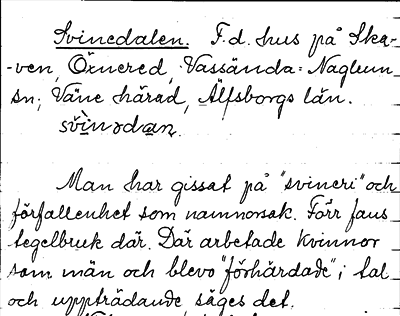 Svinedalen. F.d. hus på Ska-
-ven, Öxnered, Vassända-Naglum
sn; Väne härad, Älfsborgs län.
svìnədan.
Man har gissat på "svineri" och
förfallenhet som namnorsak. Förr fans
tegelbruk där. Där arbetade kvinnor
som män och blevo "förhärdade", i tal
och uppträdande säges det.